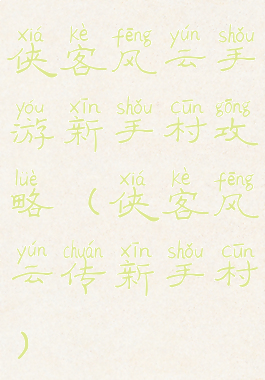 xiá kè fēng yún shǒu
侠客风云手
yóu xīn shǒu cūn gōng
游新手村攻
luè xiá kè fēng
略（侠客风
yún chuán xīn shǒu cūn
云传新手村
）